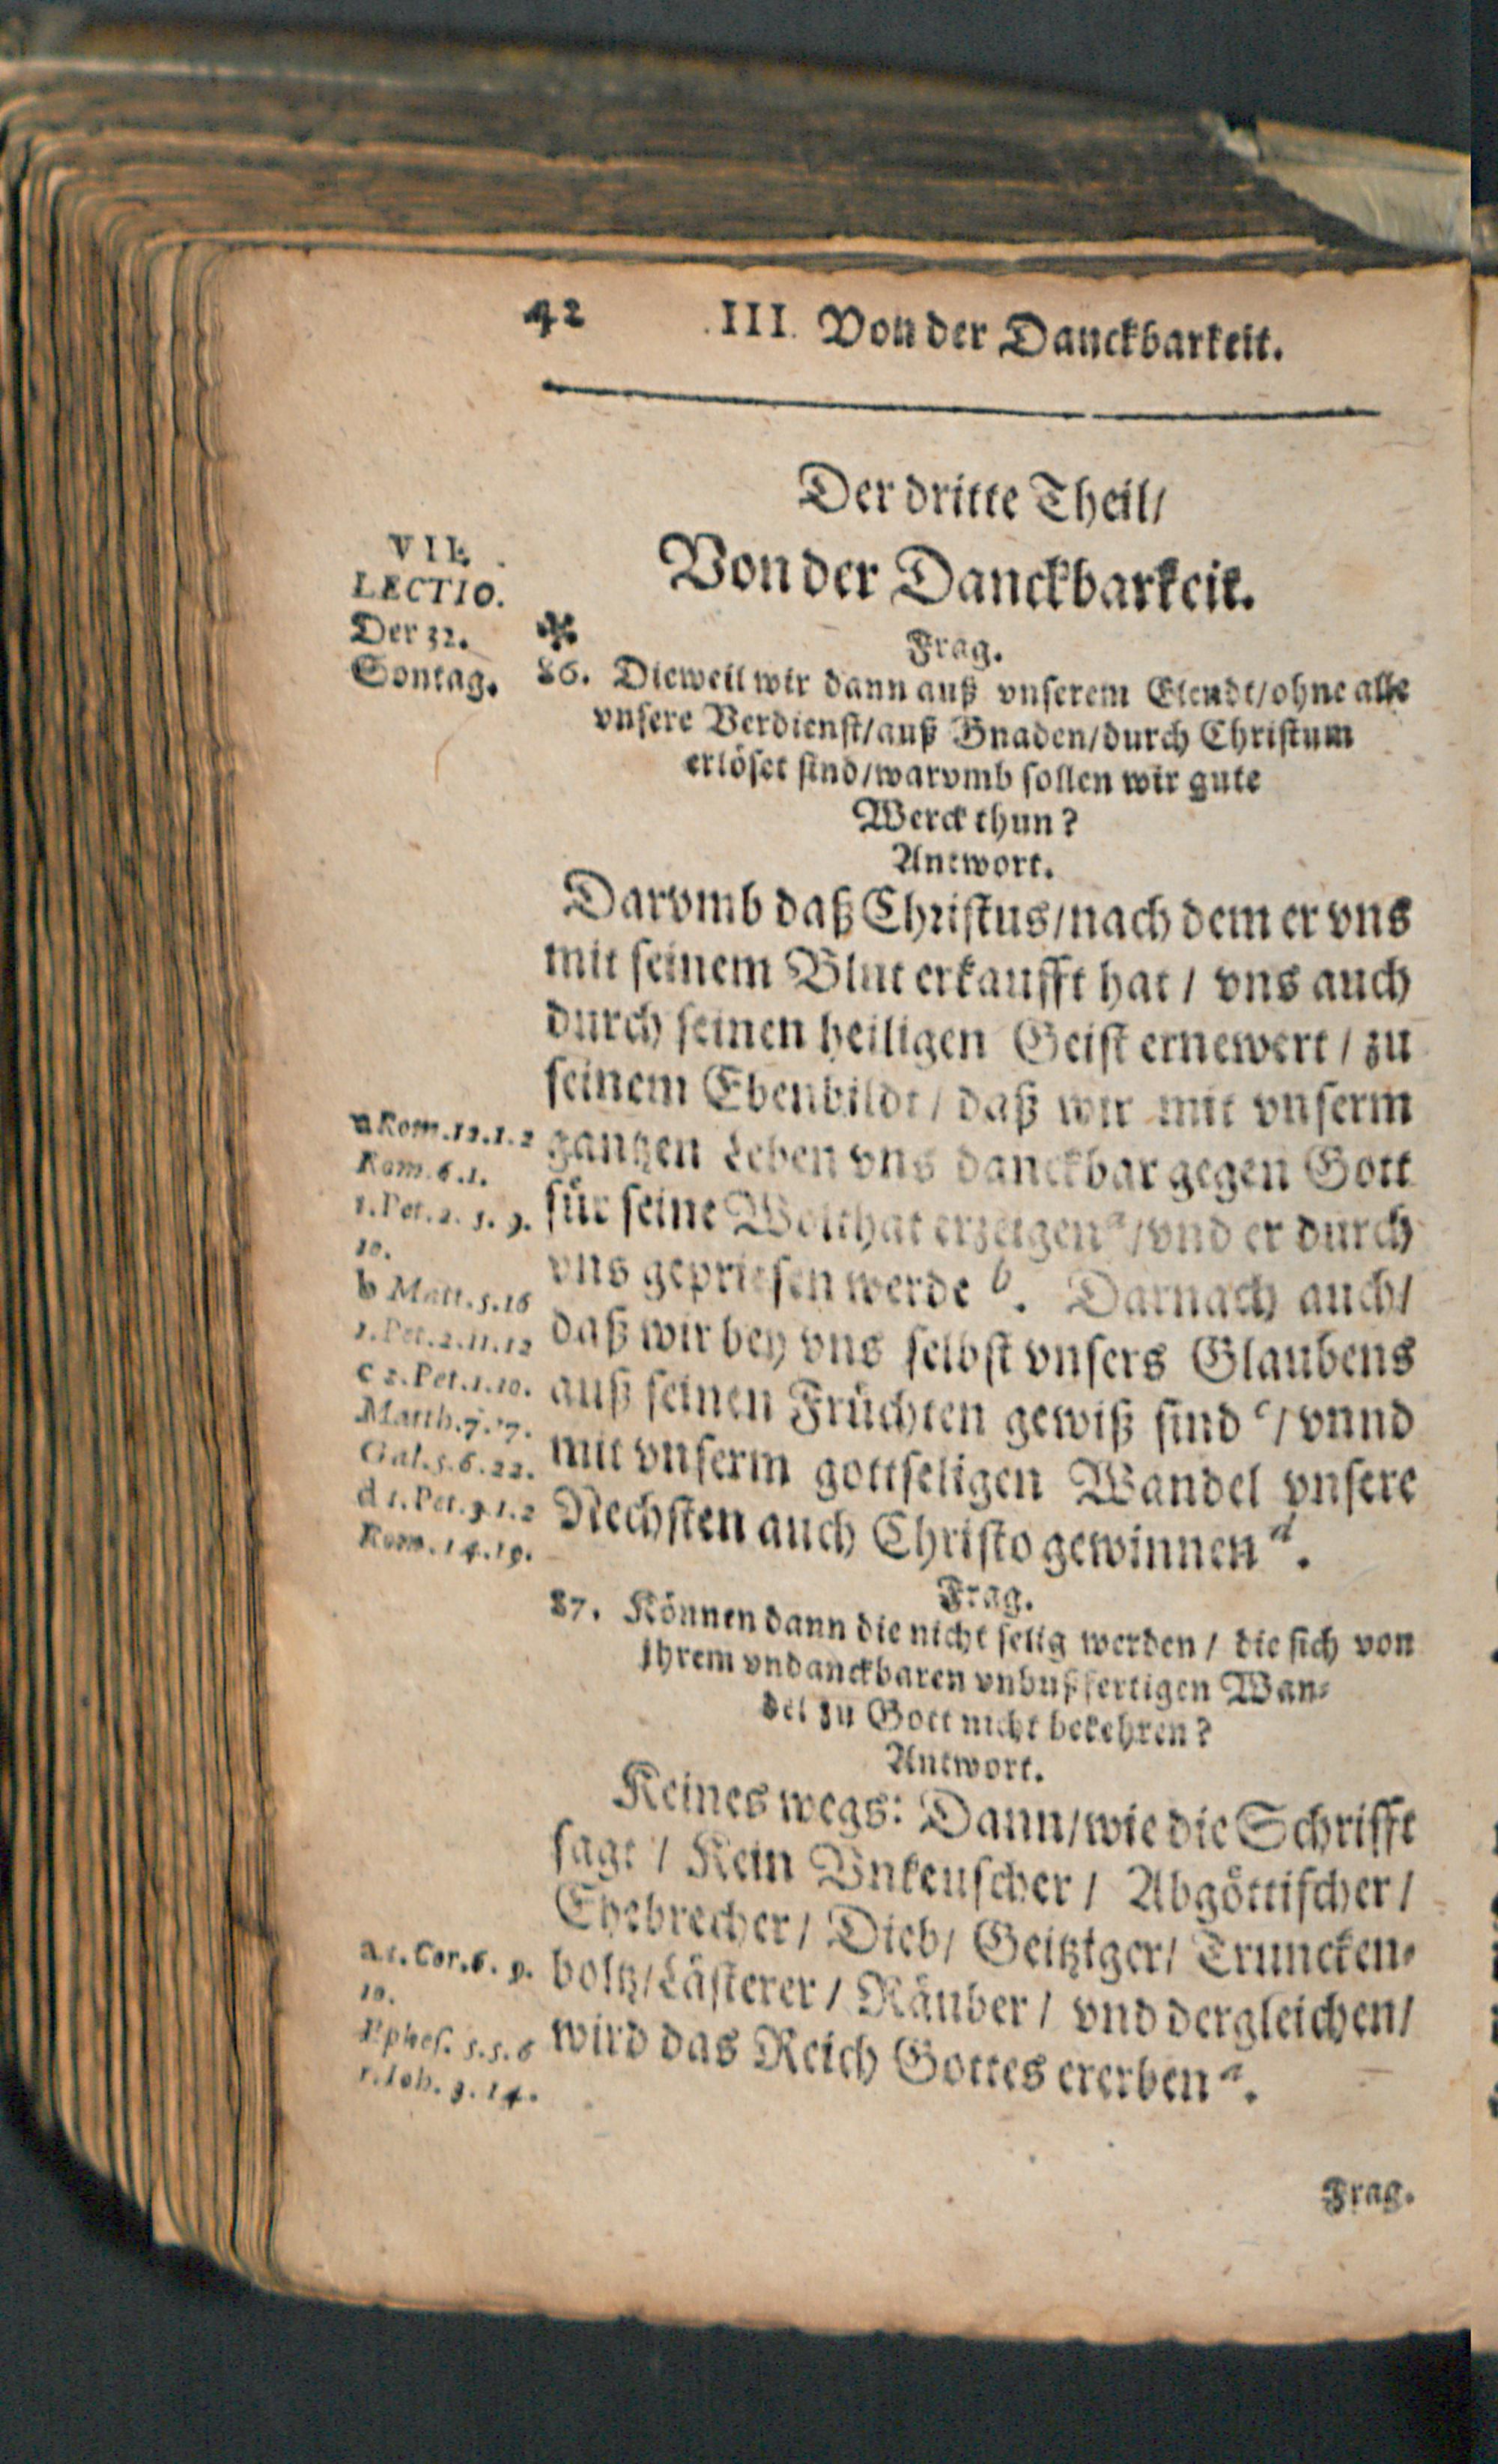 42 III. Von der Danckbarkeit.
Der dritte Theil/
Von der Danckbarkeit.
VII.
LECTIO.
Der 32.
Sontag.
✤
Frag.
86. Dieweil wir dann auß vnserem Elendt/ohne alle
vnsere Verdienst/auß Gnaden/durch Christum
erlöset sind/warvmb sollen wir gute
Werck thun?
Antwort.
Darvmb daß Christus/nach dem er vns
mit seinem Blut erkaufft hat / vns auch
durch seinen heiligen Geist ernewert / zu
seinem Ebenbildt / daß wir mit vnserm
gantzen Leben vns danckbar gegen Gott
für seine Wolthat erzeigen a/vnd er durch
vns gepriesen werde b. Darnach auch/
daß wir bey vns selbst vnsers Glaubens
auß seinen Früchten gewiß sind c/ vnnd
mit vnserm gottseligen Wandel vnsere
Nechsten auch Christo gewinnen d.
a Rom.12.1.2
Rom.6.1.
1.Pet.2.5.9.
10.
b Matt.5.16
1.Pet.2.11.12
c 2.Pet.1.10.
Matth.7.17.
Gal.5.6.22.
d 1.Pet.3.1.2
Rom.14.19.
Frag.
87. Können dann die nicht selig werden / die sich von
ihrem vndanckbaren vnbußfertigen Wan-
del zu Gott nicht bekehren?
Antwort.
Keines wegs: Dann/wie die Schrifft
sagt / Kein Vnkeuscher / Abgöttischer /
Ehebrecher/ Dieb/ Geitziger/ Truncken-
boltz/Lästerer / Räuber / vnd dergleichen/
wird das Reich Gottes ererben a.
a 1.Cor.6.9.
10.
Ephes. 5.5.6
1.Ioh.3.14.
Frag.